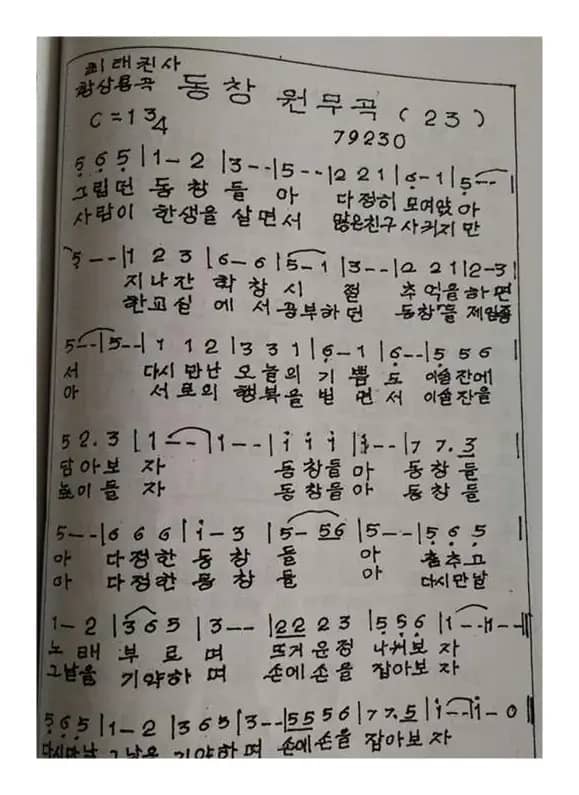 최태진사
황상용곡 동창 원무곡 (23)
C = 1 3/4 79230
5̣ 6̣ 5̣ | 1 - 2 | 3 - - | 5 - - | 2 2 1 | 6̣ - 1 | 5̣ - - |
그립던 동창들 아 다정히 모여앉아
사람이 한생을 살면서 많은친구 사귀지만
5̣ - - | 1 2 3 | 6 - 6 | 5 - 1 | 3 - - | 2 2 1 | 2 - 3 |
지나간 학창시절 추억을 하면
한교실에서 공부하던 동창들 제일좋
5 - - | 5 - - | 1 1 2 | 3 3 1 | 6̣ - 1 | 6̣ - - | 5̣ 5 6
서 다시만난 오늘의 기쁨도 이술잔에
아 서로의 행복을 빌면서 이술잔을
5 2. 3 | 1 - - | 1 - - | i i i | i - - | 7 7. 3 |
담아보자 동창들아 동창들
높이들자 동창들아 동창들
5 - - | 6 6 6 | i - 3 | 5 - 56 | 5 - - | 5̣ 6̣ 5̣
아 다정한 동창들 아 춤추고
아 다정한 동창들 아 다시만날
1 - 2 | 3 6 5 | 3 - - | 22 2 3 | 5̣ 5̣ 6̣ | 1 - - | 1 - - ‖
노래 부르며 뜨거운정 나눠보자
그날을 기약하며 손에손을 잡아보자
5̣ 6̣ 5̣ | 1 - 2 | 3 6 5 | 3 - - | 55 5 6 | 7 7. 5 | i - - | i - 0 ‖
다시만날 그날을 기약하며 손에손을 잡아보자